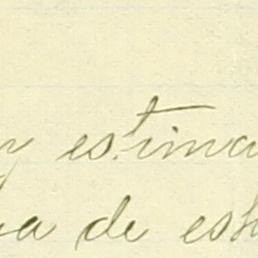 y estima
a de es